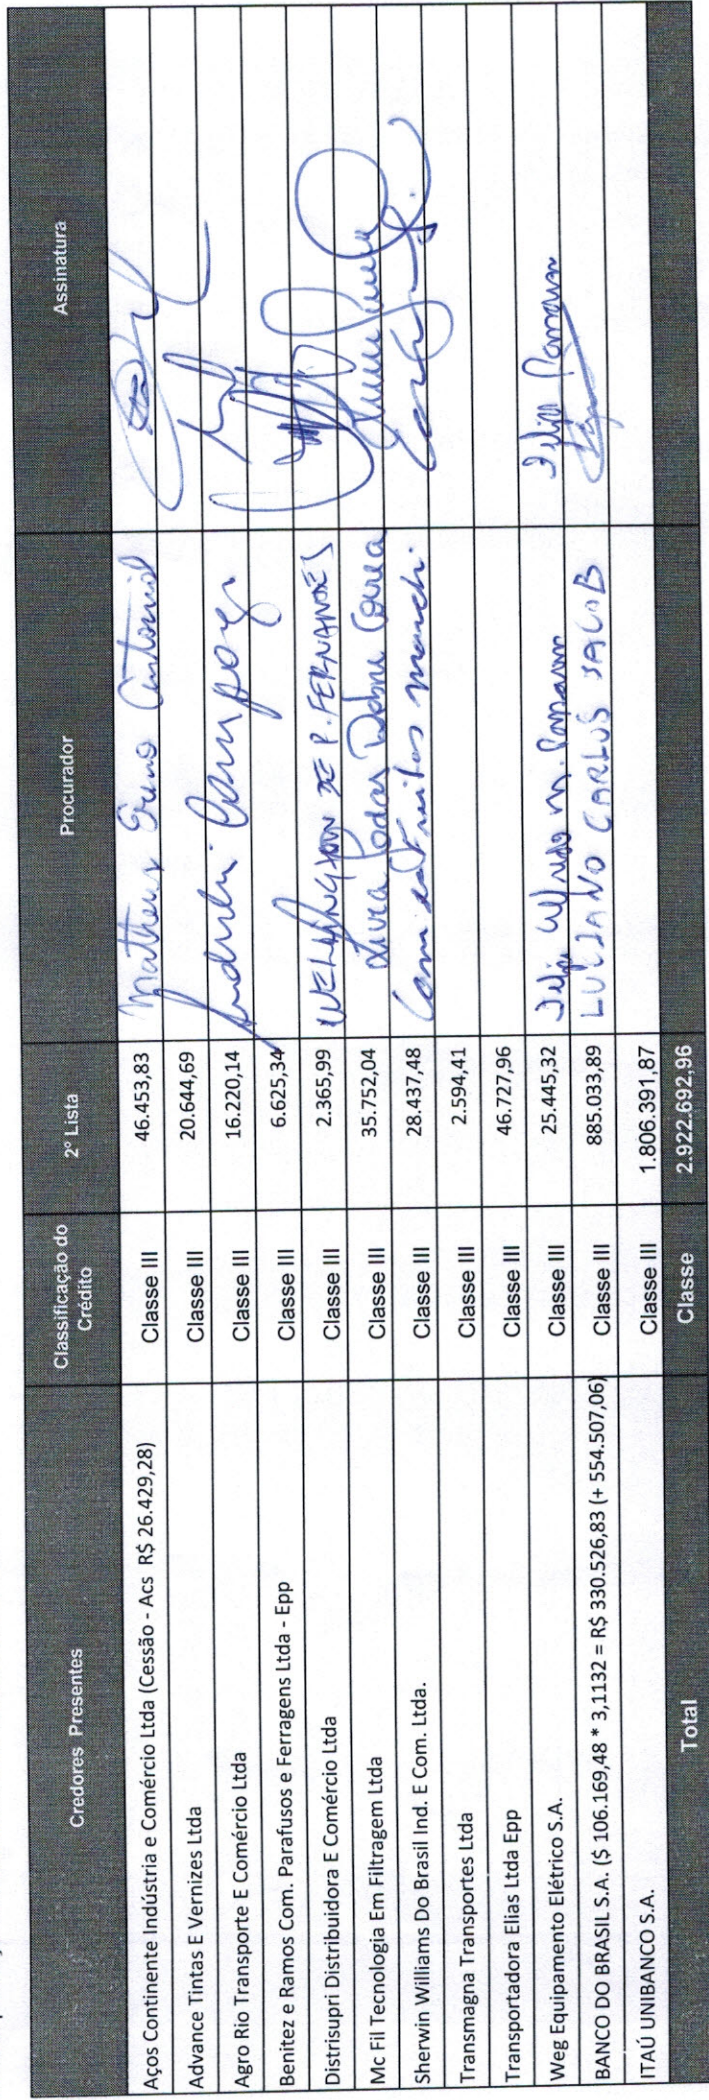 Credores Presentes Classificação do Crédito 2º Lista Procurador Assinatura
Aços Continente Indústria e Comércio Ltda (Cessão - Acs R$ 26.429,28) Classe III 46.453,83 Matheus Antonio
Advance Tintas E Vernizes Ltda Classe III 20.644,69
Agro Rio Transporte E Comércio Ltda Classe III 16.220,14
Benitez e Ramos Com. Parafusos e Ferragens Ltda - Epp Classe III 6.625,34
Distrisupri Distribuidora E Comércio Ltda Classe III 2.365,99 WELLINGTON DE P. FERNANDES
Mc Fil Tecnologia Em Filtragem Ltda Classe III 35.752,04
Sherwin Williams Do Brasil Ind. E Com. Ltda. Classe III 28.437,48
Transmagna Transportes Ltda Classe III 2.594,41
Transportadora Elias Ltda Epp Classe III 46.727,96
Weg Equipamento Elétrico S.A. Classe III 25.445,32
BANCO DO BRASIL S.A. ($ 106.169,48 * 3,1132 = R$ 330.526,83 (+ 554.507,06) Classe III 885.033,89 LUCIANO CARLOS JACOB
ITAÚ UNIBANCO S.A. Classe III 1.806.391,87
Total Classe 2.922.692,96